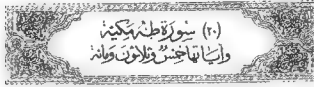 (٢٠) سُورَة طٰهٰ مَكيَّة
وآياتها خمسٌ وثلاثون ومائة